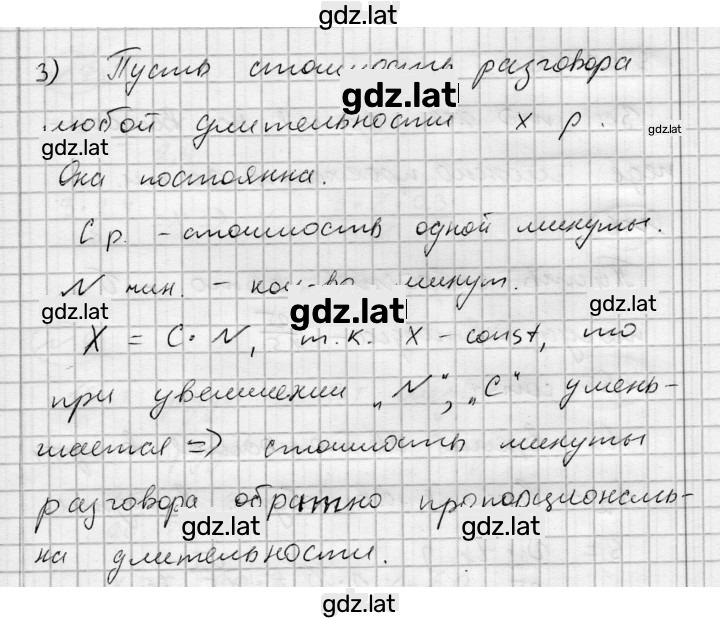 gdz.lat
3) Пусть стоимость разговора
gdz.lat
любой длительности x р.
gdz.lat
gdz.lat
Она постоянна.
C р. - стоимость одной минуты.
N мин. - кол-во минут.
gdz.lat
gdz.lat
gdz.lat
X = C · N, т.к. X - const, то
при увеличении „N“, „C“ умень-
шается => стоимость минуты
разговора обратно пропорциональ-
gdz.lat
gdz.lat
на длительности.
gdz.lat